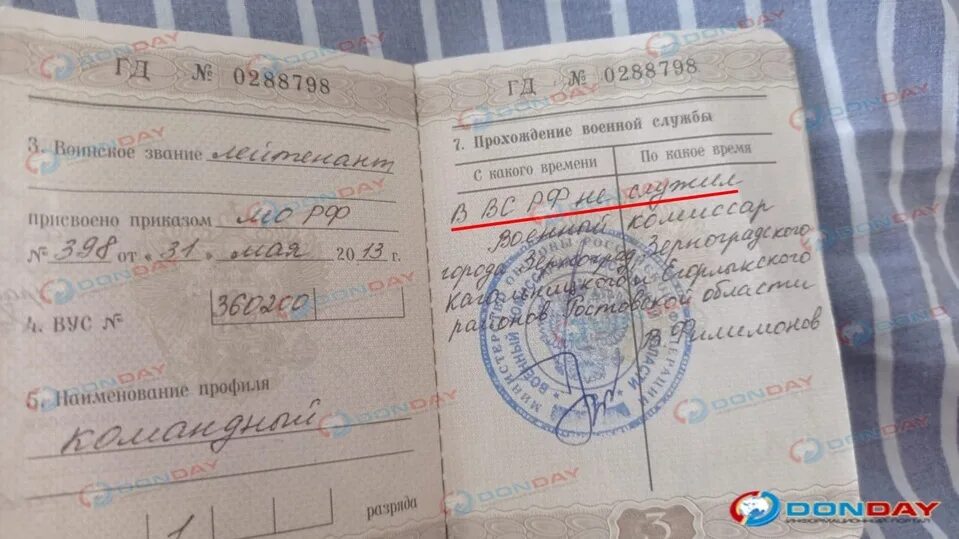 ГД № 0288798
3. Воинское звание лейтенант
присвоено приказом МО РФ
№ 398 от «31» мая 2013 г.
4. ВУС № 360200
5. Наименование профиля
командный
1 разряда
ГД № 0288798
7. Прохождение военной службы
С какого времени По какое время
В ВС РФ не служил
Военный комиссар
города Зерноград, Зерноградского
Кагальницкого и Егорлыкского
районов Ростовской области
В. Филимонов
3
DONDAY
ИНФОРМАЦИОННЫЙ ПОРТАЛ